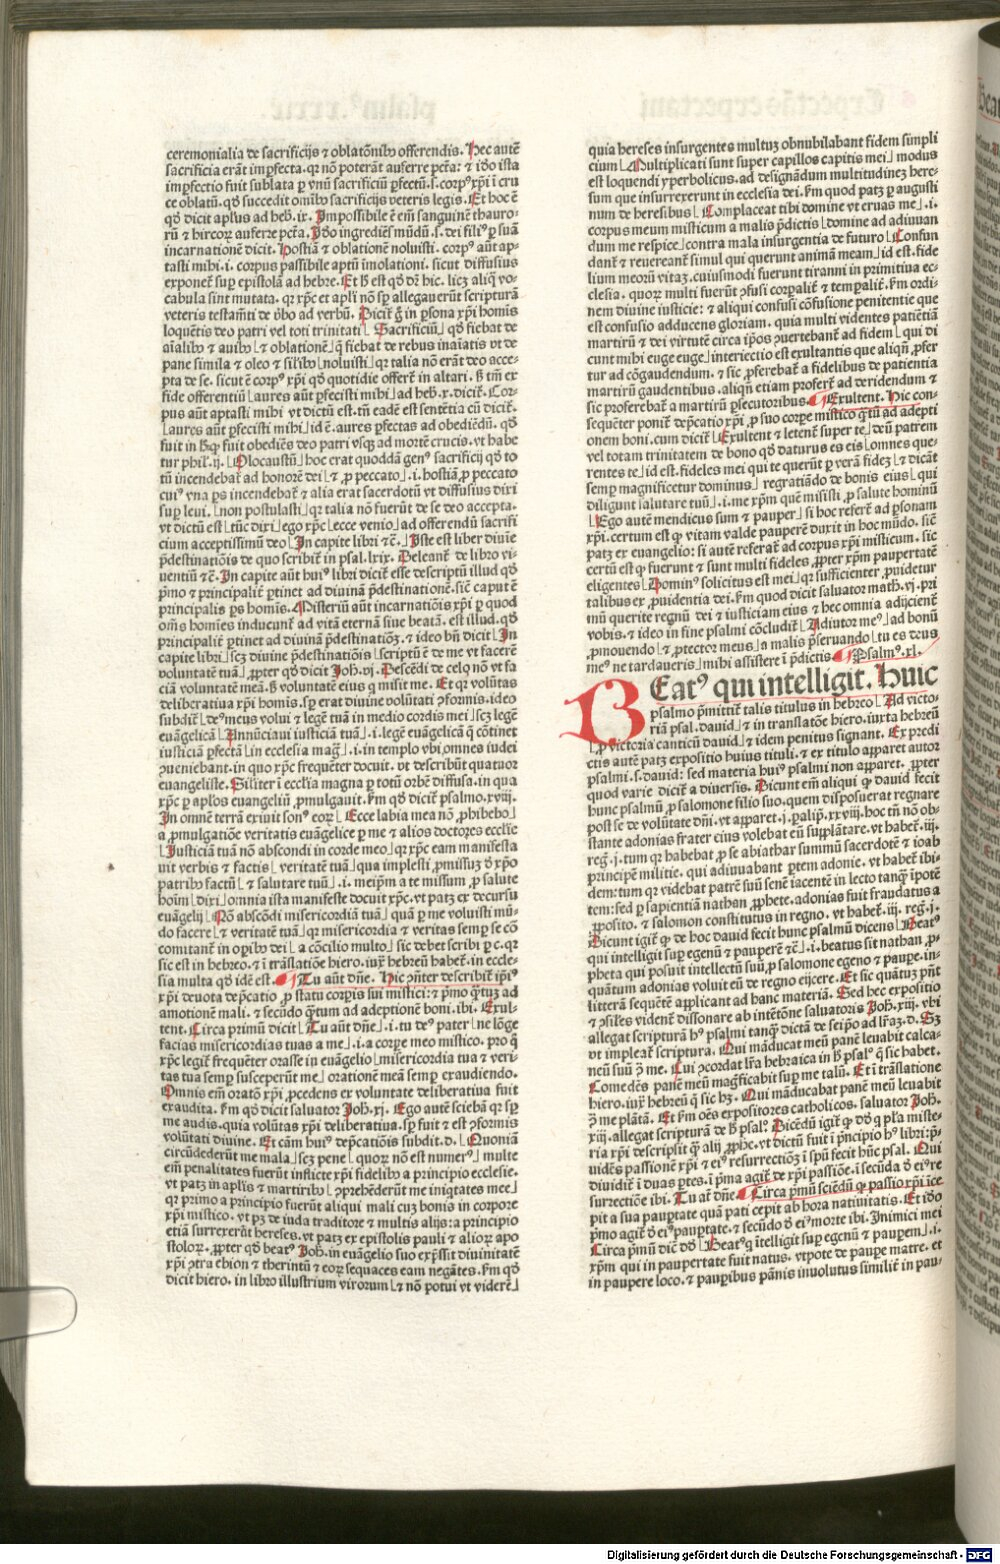 ceremonialia de sacrificijs ⁊ oblatōnib⁹ offerendis. Hec autē
sacrificia erāt imꝑfecta. qꝛ nō poterāt auferre pctā: ⁊ iō ista
imꝑfectio fuit sublata ꝑ vnū sacrificiū ꝑfectū .s. corp⁹ xp̄i ī cru
ce oblatū. qd̓ succedit omīb⁹ sacrificijs veteris legis. Et hoc ē
qd̓ dicit apl̓us ad heb̓. ix. Impossibile ē em̄ sanguinē thauro-
rū ⁊ hircoꝝ auferre pctā. Iō ingrediēs mūdū .s. dei fili⁹ ꝑ suā
incarnationē dicit. Hostiā ⁊ oblationē noluisti. corp⁹ aūt ap-
tasti mihi .i. corpus passibile aptū īmolationi. sicut diffusius
exponet̄ suꝑ epistolā ad hebre. Et lꝫ est qd̓ dr̄ hic. licꝫ aliq̄ vo-
cabula sint mutata. qꝛ xp̄c et apl̓i nō sꝑ allegauerūt scripturā
veteris testam̄ti de v̓bo ad verbū. Dicit̄ g̊ in ꝑsona xp̄i homis
loquētis deo patri vel toti trinitati Sacrificiū qd̓ fiebat de
aīalib⁹ ⁊ auib⁹ ⁊ oblationē q̄ fiebat de rebus inaīatis vt de
pane simila ⁊ oleo ⁊ sil̓ib⁹ noluisti qꝛ talia nō erāt deo acce-
pta de se. sicut ē corp⁹ xp̄i qd̓ quotidie offert̄ in altari. Sꝫ tn̄ ex
fide offerentiū aures aūt ꝑfecisti mihi ad heb̓. x. dicit̄. Cor-
pus aūt aptasti mihi vt dictū est. tn̄ eadē est sentētia cū dicit̄.
aures aūt ꝑfecisti mihi id ē. aures ꝑfectas ad obediēdū. qd̓
fuit in hoc qꝛ fuit obediēs deo patri vsqꝫ ad mortē crucis. vt habe
tur phil̓. ij. Olocaustū hoc erat quoddā gen⁹ sacrificij qd̓ to
tū incendebat̄ ad honorē dei ⁊ ꝓ peccato .i. hostiā ꝓ peccato
cui⁹ vna ps incendebat̄ ⁊ alia erat sacerdotū vt diffusius dixi
suꝑ leui. non postulasti qꝛ talia nō fuerūt de se deo accepta.
vt dictū est tūc dixi ego xp̄c ecce venio ad offerendū sacrifi
cium acceptissimū deo In capite libri ⁊c̄. Iste est liber diuīe
p̄destinatiōis de quo scribit̄ in psal. lxix. Deleant̄ de libro vi-
uentiū ⁊c̄. In capite aūt hui⁹ libri dicit̄ esse descriptū illud qd̓
p̄mo ⁊ principalit̄ ꝑtinet ad diuinā p̄destinationē. sic̄ caput ē
principalis ps homīs. Misteriū aūt incarnatiōis xp̄i ꝑ quod
om̄s homīes inducunt̄ ad vitā eternā siue beatā. est illud. qd̓
principalit̄ ꝑtinet ad diuinā p̄destinatiōꝫ. ⁊ ideo bn̄ dicit In
capite libri scꝫ diuine p̄destinatiōis scriptū ē de me vt facerē
voluntatē tuā ꝓpter qd̓ dicit Joh̓. vj. Descēdi de celo. nō vt fa
ciā voluntatē meā. sꝫ volūtatē eius q̄ misit me. Et qꝛ volūtas
deliberatiua xp̄i homis. sꝑ erat diuine volūtati ꝯformis. ideo
subdit de⁹ meus volui ⁊ legē tuā in medio cordis mei scꝫ legē
euāgelicā Annūciaui iusticiā tuā .i. legē euāgelicā q̄ cōtinet
iusticiā ꝑfectā in ecclesia maḡ .i. in templo vbi omnes iudei
ꝯueniebant. in quo xp̄c frequēter docuit. vt describūt quatuor
euangeliste. Similiter ī ecclīa magna ꝑ totū orbē diffusa. in qua
xp̄c ꝑ apl̓os euangeliū ꝓmulgauit. Scdm qd̓ dicit̄ psalmo. xviij.
In omnē terrā exiuit son⁹ eoꝝ Ecce labia mea nō ꝓhibebo
a ꝓmulgatiōe veritatis euāgelice ꝑ me ⁊ alios doctores ecclīe
Iusticiā tuā nō abscondi in corde meo qꝛ xp̄c eam manifesta
uit verbis ⁊ factis veritatē tuā qua implesti ꝓmissuꝫ d̓ xp̄o
patrib⁹ factū ⁊ salutare tuū .i. meip̄m a te missum ꝓ salute
hoīm dixi omnia ista manifeste docuit xp̄c. vt patꝫ ex decursu
euāgelij Nō abscōdi misericordiā tuā quā ꝑ me voluisti mū-
do facere ⁊ veritatē tuā qꝛ misericordia ⁊ veritas semꝑ se cō
comitant̄ in oꝑib⁹ dei a cōcilio multo sic debet scribi ꝑ c. qꝛ
sic est in hebreo. ⁊ ī trāslatiōe hiero. iuxͣ hebreū habet̄. in eccle-
sia multa qd̓ idē est. Tu aūt dn̄e. Hic ꝯn̄ter describit̄ ip̄i⁹
xp̄i deuota dep̄catio ꝓ statu corpis sui mistici: ⁊ p̄mo q̄tuꝫ ad
amotionē mali. ⁊ secūdo q̄tum ad adeptionē boni. ibi. Exul-
tent. Circa primū dicit Tu aūt dn̄e .i. tu de⁹ pater ne lōge
facias misericordias tuas a me .i. a corꝑe meo mistico. pro q̄
xp̄c legit̄ frequēter orasse in euāgelio misericordia tua ⁊ veri-
tas tua semꝑ susceperūt me orationē meā semꝑ exaudiendo.
Omnis em̄ oratō xp̄i ꝓcedens ex voluntate deliberatiua fuit
exaudita. Scdm qd̓ dicit saluator Joh̓. xj. Ego autē sciebā qꝛ sꝑ
me audis. quia volūtas xp̄i deliberatiua. sꝑ fuit ⁊ est ꝯformis
volūtati diuine. Et cām hui⁹ dep̄catiōis subdit. d. Quoniā
circūdederūt me mala scꝫ pene quoꝝ nō est numer⁹ multe
em̄ penalitates fuerūt inflicte xp̄i fidelib⁹ a principio ecclesie.
vt patꝫ in apl̓is ⁊ martirib⁹ ꝯprehēderūt me iniqtates mee
qꝛ primo a principio fuerūt aliqui mali cuꝫ bonis in corpore
xp̄i mistico. vt pꝫ de iuda traditore ⁊ multis alijs: a principio
etiā surrexerūt hereses. vt patꝫ ex epistolis pauli ⁊ alioꝝ apo
stoloꝝ. ꝓpter qd̓ beat⁹ Joh̓. in euāgelio suo exp̄ssit diuinitatē
xp̄i ꝯtra ebion ⁊ therintū ⁊ eoꝝ sequaces eam negātes. Scdm qd̓
dicit hiero. in libro illustrium virorum ⁊ nō potui vt viderē
quia hereses insurgentes multuꝫ obnubilabant fidem simpli
cium Multiplicati sunt super capillos capitis mei modus
est loquendi yperbolicus. ad designādum multitudineꝫ here-
sum que insurrexerunt in ecclesia dei. Scdm quod patꝫ ꝑ augusti
num de heresibus Complaceat tibi domine vt eruas me .i.
corpus meum misticum a malis p̄dictis domine ad adiuuan
dum me respice contra mala insurgentia de futuro Confun
dant̄ ⁊ reuereant̄ simul qui querunt animā meam id est. fide
lium meoꝝ vitaꝫ. cuiusmodi fuerunt tiranni in primitiua ec-
clesia. quoꝝ multi fuerūt ꝯfusi corpalit̄ ⁊ tempalit̄. Scdm ordi-
nem diuine iusticie: ⁊ aliqui confusi cōfusione penitentie que
est confusio adducens gloriam. quia multi videntes patiētiā
martirū ⁊ dei virtutē circa ip̄os ꝯuertebant̄ ad fidem qui di
cunt mihi euge euge interiectio est exultantis que aliqn̄ ꝓfer
tur ad cōgaudendum. ⁊ sic ꝓferebat̄ a fidelibus de patientia
martirū gaudentibus. aliqn̄ etiam profert̄ ad deridendum ⁊
sic proferebat̄ a martirū ꝑsecutoribus. Exultent. Hic con-
sequēter ponit̄ dep̄catio xp̄i ꝓ suo corpe mistico q̄tū ad adepti
onem boni. cum dicit̄ Exultent ⁊ letent̄ super te deū patrem
vel totam trinitatem de bono qd̓ daturus es eis omnes que-
rentes te id est. fideles mei qui te querūt ꝑ verā fideꝫ ⁊ dicāt
semꝑ magnificetur dominus regratiādo de bonis eius qui
diligunt salutare tuū .i. me xp̄m quē misisti ꝓ salute hominū
Ego autē mendicus sum ⁊ pauper si hoc referat̄ ad ꝑsonam
xp̄i. certum est qꝫ vitam valde pauperē duxit in hoc mūdo. sic̄
patꝫ ex euangelio: si autē referat̄ ad corpus xp̄i misticum. sic
certū est qꝫ fuerunt ⁊ sunt multi fideles ꝓpter xp̄m paupertatē
eligentes Domin⁹ solicitus est mei qꝛ sufficienter ꝓuidetur
talibus ex ꝓuidentia dei. Scdm quod dicit saluator math. vj. pri
mū querite regnū dei ⁊ iusticiam eius ⁊ hec omnia adijcient̄
vobis. ⁊ ideo in fine psalmi cōcludit Adiutor me⁹ ad bonū
ꝓmouendo ⁊ ꝓtector meus a malis p̄seruando tu es deus
me⁹ ne tardaueris mihi assistere ī p̄dictis. Psalm⁹. xl.
BEat⁹ qui intelligit. Huic
psalmo p̄mittit̄ talis titulus in hebreo Ad victo-
riā psal. dauid ⁊ in translatōe hiero. iuxta hebreū
ꝓ victoria canticū dauid ⁊ idem penitus signant. Ex predi
ctis autē patꝫ expositio huius tituli. ⁊ ex titulo apparet autor
psalmi .s. dauid: sed materia hui⁹ psalmi non apparet. ꝓpter
quod varie dicit̄ a diuersis. Dicunt em̄ aliqui qꝫ dauid fecit
hunc psalmū ꝓ salomone filio suo. quem disposuerat regnare
post se de volūtate dn̄i. vt apparet .j. palip̄. xxviij. hoc tn̄ nō ob-
stante adonias frater eius volebat eū supplātare. vt habet̄. iij.
reg̃. j. tum qꝛ habebat ꝓ se abiathar summū sacerdotē ⁊ ioab
principem militie. qui adiuuabant ꝑtem adonie. vt habet̄ ibi-
dem: tum qꝛ videbat patrē suū senē iacentē in lecto tanq̄ īpotē
tem: sed ꝑ sapientiā nathan ꝓphete. adonias fuit fraudatus a
ꝓposito. ⁊ salomon constitutus in regno. vt habet̄. iij. reg̃. j.
Dicunt igit̄ qꝫ de hoc dauid fecit hunc psalmū dicens Beat⁹
qui intelligit suꝑ egenū ⁊ pauperē ⁊c̄ .i. beatus sit nathan ꝓ-
pheta qui posuit intellectū suū ꝓ salomone egeno ⁊ paupe. in-
quātum adonias voluit eū de regno eijcere. Et sic quātuꝫ ꝑtinet̄
litterā sequētē applicant ad hanc materiā. Sed hec expositio
⁊ ꝯsiles vident̄ dissonare ab intētōne saluatoris Joh̓. xiij. vbi
allegat scripturā h⁹ psalmi tanq̄ dictā de seip̄o ad lr̄aꝫ. d. Sꝫ
vt impleat̄ scriptura. Qui māducat meū panē leuabit calca-
neū suū ꝯ̄ me. Cui ꝯcordat lr̄a hebraica in lꝫ psal⁹ q̄ sic habet̄.
Comedēs panē meū magn̄ficabit suꝑ me talū. Et ī trāslatione
hiero. iuxͣ hebreū q̄ sic hꝫ. Qui māducabat panē meū leuabit
ꝯ̄ me plātā. Et Scdm oēs expositores catholicos. saluator Joh̓.
xiij. allegat scripturā de lꝫ psal⁹. Dicēdū igit̄ qꝫ dd̓ q̄ pl̓a miste-
ria xp̄i descripsit q̄ alij ꝓphe. vt dictū fuit ī p̄ncipio h⁹ libri: p̄-
uidēs passionē xp̄i ⁊ ei⁹ resurrectiōꝫ ī sp̄u fecit hūc psal. Qui
diuidit̄ ī duas ꝑtes. ī p̄ma agit̄ de xp̄i passiōe. ī secūda d̓ ei⁹ re
surrectiōe ibi. Tu at̄ dn̄e. Circa p̄mū sciēdū qꝫ passio xp̄i ice
pit a sua pauꝑtate quā pati cepit ab hora natiuitatis. Et iō
p̄mo agit̄ d̓ ei⁹ pauꝑtate. ⁊ secūdo d̓ ei⁹ morte ibi. Inimici mei
Circa p̄mū dic̄ dd̓ Beat⁹ q̄ ītelligit suꝑ egenū ⁊ paupeꝫ .i.
xp̄m qui in paupertate fuit natus. vtpote de paupe matre. et
in paupere loco. ⁊ paupibus pānis inuolutus similiē in pau-
Digitalisierung gefördert durch die Deutsche Forschungsgemeinschaft - DFG